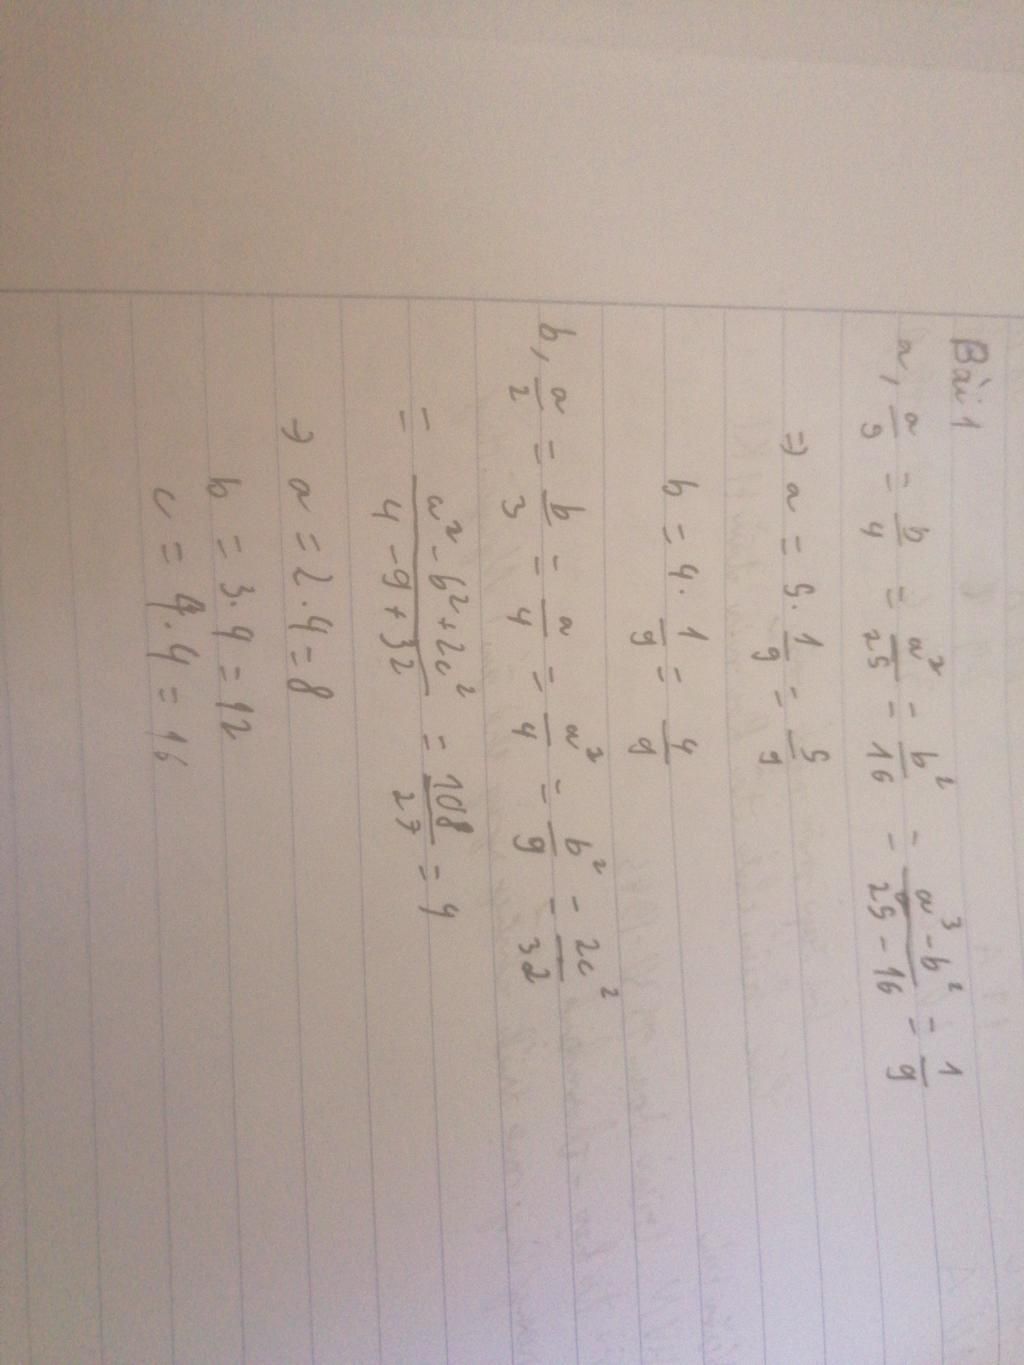 Bài 1
a, a/5 = b/4 = a²/25 = b²/16 = a² - b²/25 - 16 = 1/9
=> a = 5. 1/9 = 5/9
b = 4. 1/9 = 4/9
b, a/2 = b/3 = a/4 = a²/4 = b²/9 = 2c²/32
= a² - b² + 2c²/4 - 9 + 32 = 108/27 = 4
=> a = 2.4 = 8
b = 3.4 = 12
c = 4.4 = 16